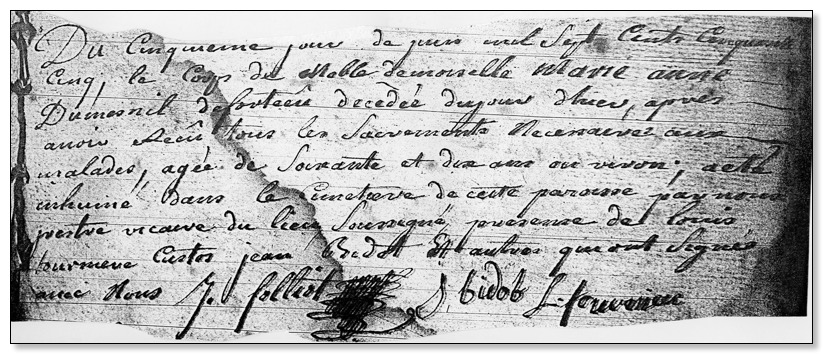 Du Cinquieme jour de juin mil Sept Cents Cinquante
Cinq, le Corps de Noble demoiselle Marie anne
Dumesnil decedée dujour dhier, aprés
avoir Receû tous les Sacrements Necessaires aux
malades, agée de Soixante et dix ans ou viron; a eté
inhumé dans le Cimetiere de cette paroisse par nous
prestre vicaire du lieu Soussigné, presense de Louis
fourniere Custos jean Bidot Et autres qui ont Signés
avec Nous J. folliot J bidot L. fourniere